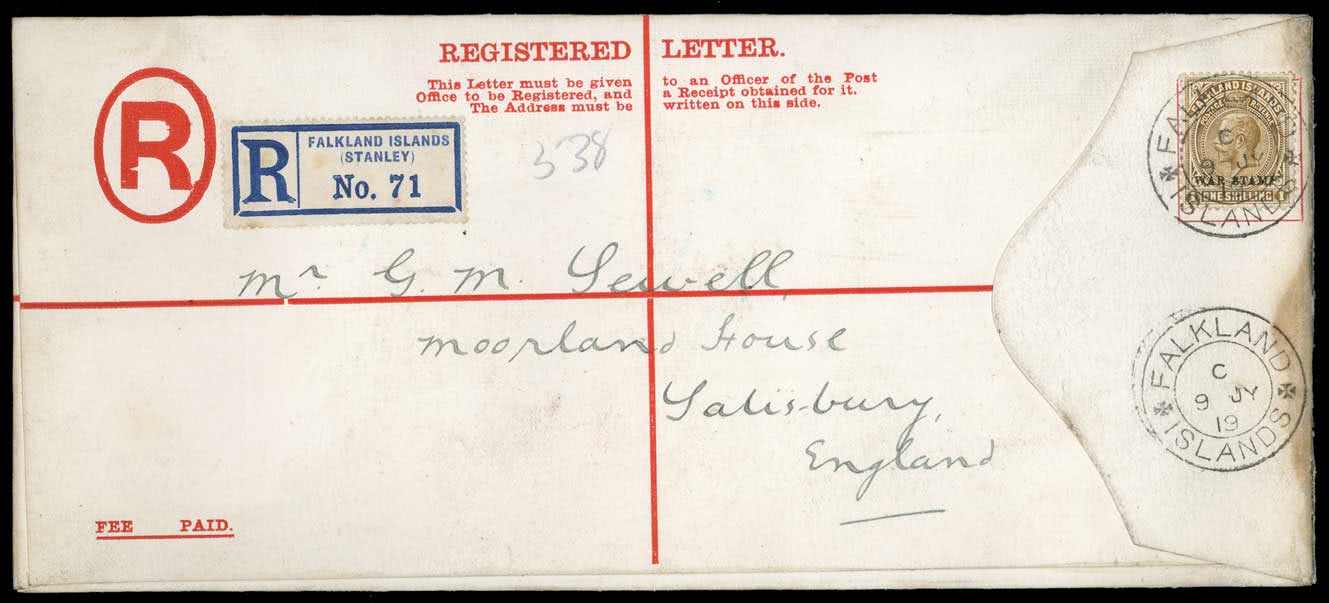 REGISTERED LETTER.
This Letter must be given to an Officer of the Post
Office to be Registered, and a Receipt obtained for it.
The Address must be written on this side.
R
R
FALKLAND ISLANDS
(STANLEY)
No. 71
538
FALKLAND ISLANDS
C
9 JY
WAR STAMP
1 ONE SHILLING 1
Mr G. M. Sewell,
Moorland House
Salisbury,
England
FALKLAND ISLANDS
C
9 JY
19
FEE PAID.